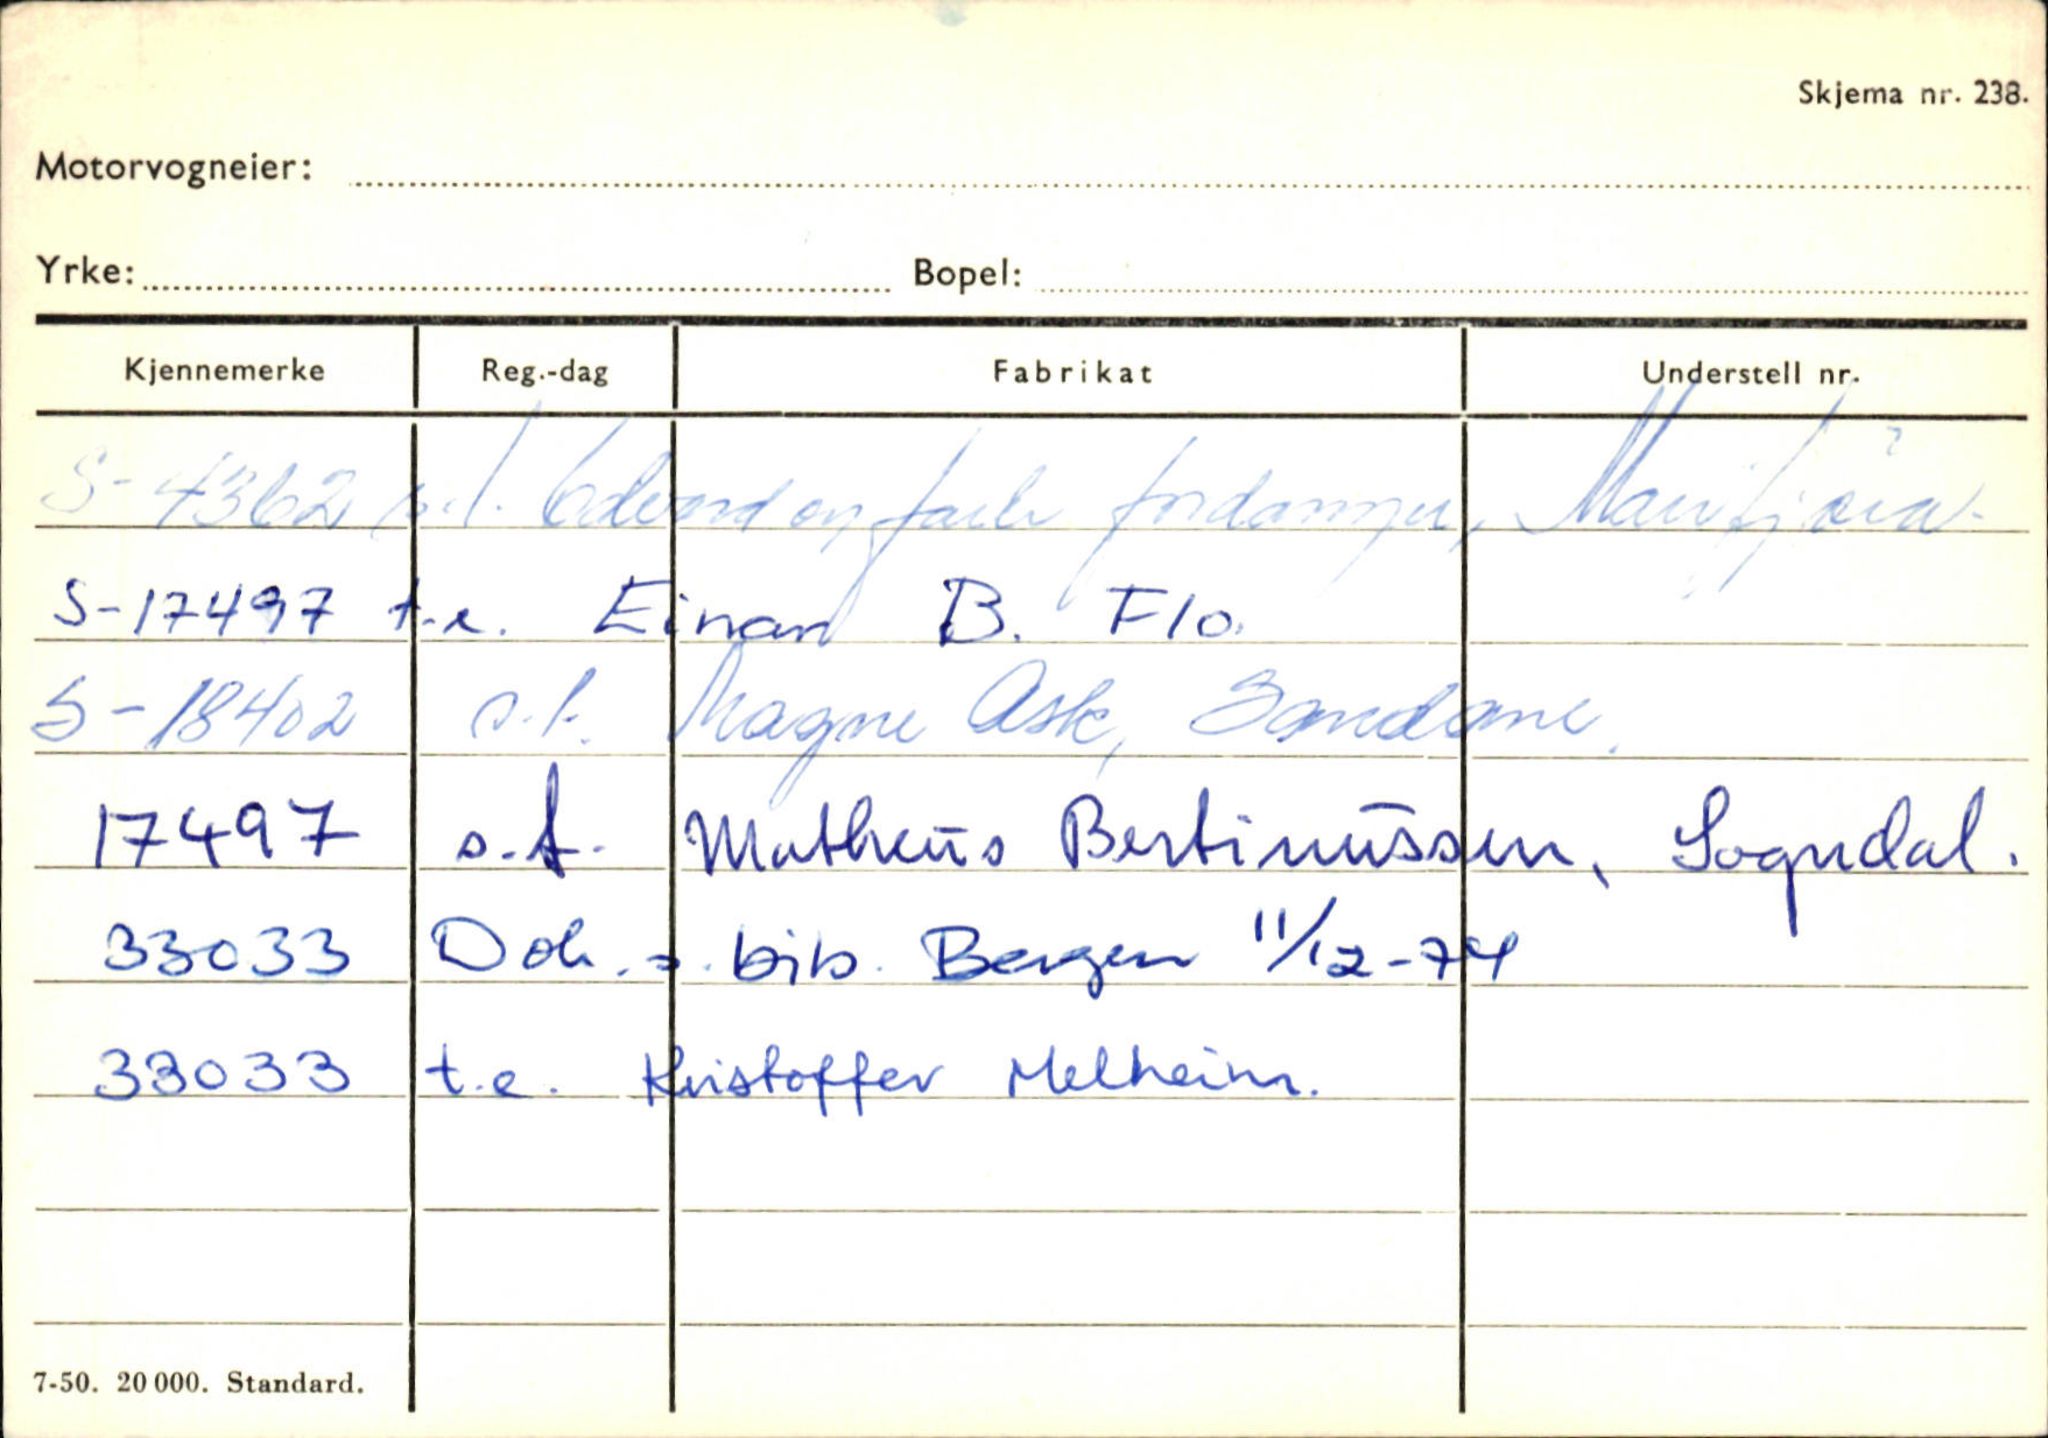 Skjema nr. 238.
Motorvogneier:
Yrke: Bopel:
Kjennemerke Reg.-dag Fabrikat Understell nr.
S-4362 s.t. Edvard og Jarle Fordanger, Marifjøra.
S-17497 t.e. Einar B. Flo.
S-18402 s.t. Magne Ask, Sandane.
17497 s.t. Matheus Bertinussen, Sogndal.
33033 Dok. s. bib. Bergen 11/12-74
33033 t.e. Kristoffer Melheim.
7-50. 20 000. Standard.